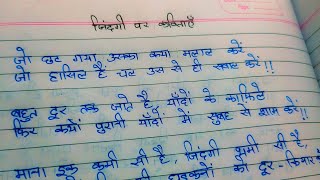 ज़िंदगी पर कविताएँ
जो छूट गया, उसका क्या मलाल करें
जो हासिल है, चल उस से ही सवाल करें!!
बहुत दूर तक जाते है, यादों के काफिले
फिर क्यों पुरानी यादों में सुबह से शाम करें!!
माना इक कमी सी है, जिंदगी थमी सी है,
धड़कनों को दूर-किनार